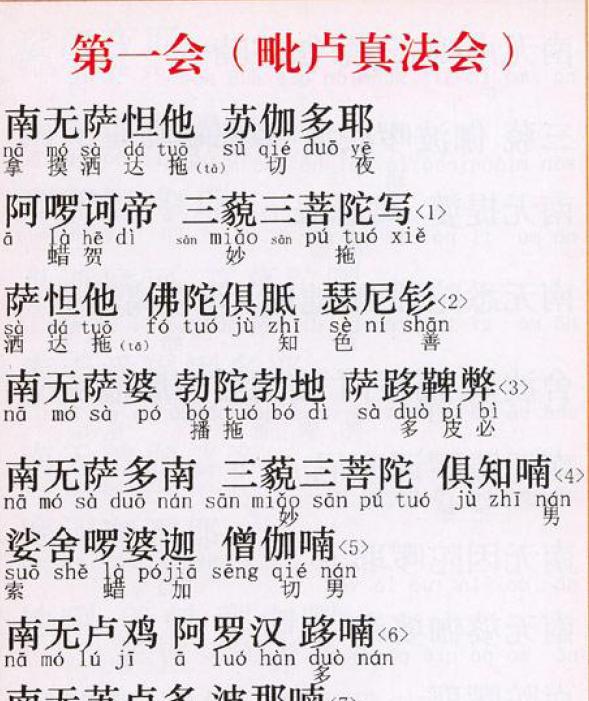 第一会（毗卢真法会）
南无萨怛他 苏伽多耶
nā mó sà dá tuō sū qié duō yē
拿 摸 洒 达 拖(tà) 切 夜
阿啰诃帝 三藐三菩陀写<1>
ā là hē dì sān miǎo sān pú tuó xiě
蜡 贺 妙 拖
萨怛他 佛陀俱胝 瑟尼钐<2>
sà dá tuō fó tuó jù zhī sè ní shān
洒 达 拖(tā) 知 色 善
南无萨婆 勃陀勃地 萨跢鞞弊<3>
nā mó sà pó bó tuó bó dì sà duò pí bì
播 拖 多 皮 必
南无萨多南 三藐三菩陀 俱知喃<4>
nā mó sà duō nán sān miǎo sān pú tuó jù zhī nán
妙 男
娑舍啰婆迦 僧伽喃<5>
suō shě là pójiā sēng qié nán
索 蜡 加 切 男
南无卢鸡 阿罗汉 跢喃<6>
nā mó lú jī ā luó hàn duò nán
多
南无苏卢多 波那喃